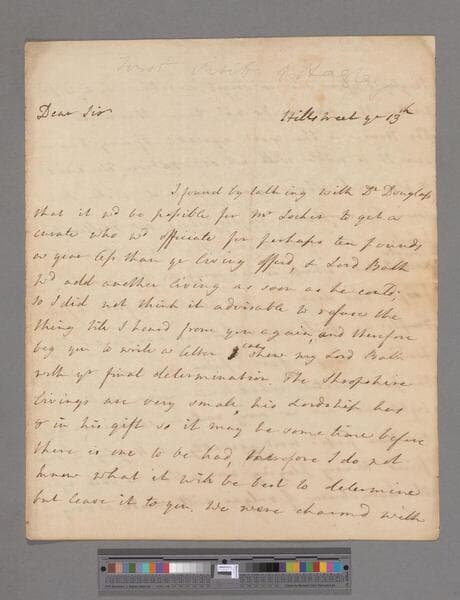 Dear Sir
Hillstreet ye 13th
I found by talking with Dr Douglass
that it wd be possible for Mr Locher to get a
curate who wd officiate for perhaps ten pounds
a year less than ye living offerd, & Lord Bath
wd add another living as soon as he could;
so I did not think it adviseable to refuse the
thing till I heard from you again, and therefore
beg you to write a letter I can shew my Lord Bath
with yr final determination. The Shropshire
livings are very small, his Lordship has
in his gift so it may be some time before
there is one to be had, therefore I do not
know what it will be best to determine
but leave it to you. We were charmed with